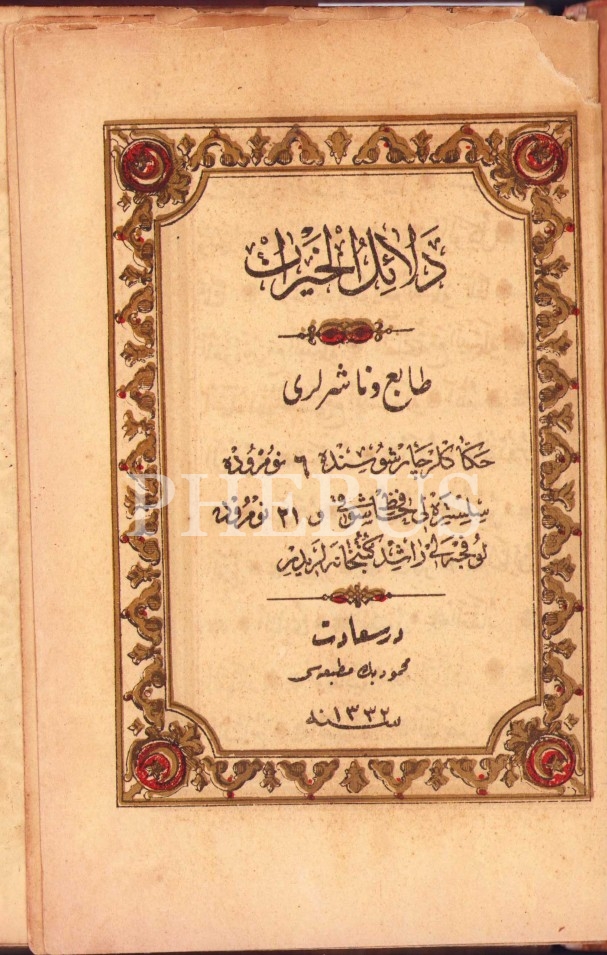 دلائل الخيرات
طابع و ناشرلری
حکاکلر چارشوسنده ٦ نومروده
سلسترەلی حافظ شوقی و ٣١ نومروده
لوفچەلی راشد کتبخانەلریدر
درسعادت
محمود بك مطبعەسی
سنە ١٣٣٢
PHEBUS